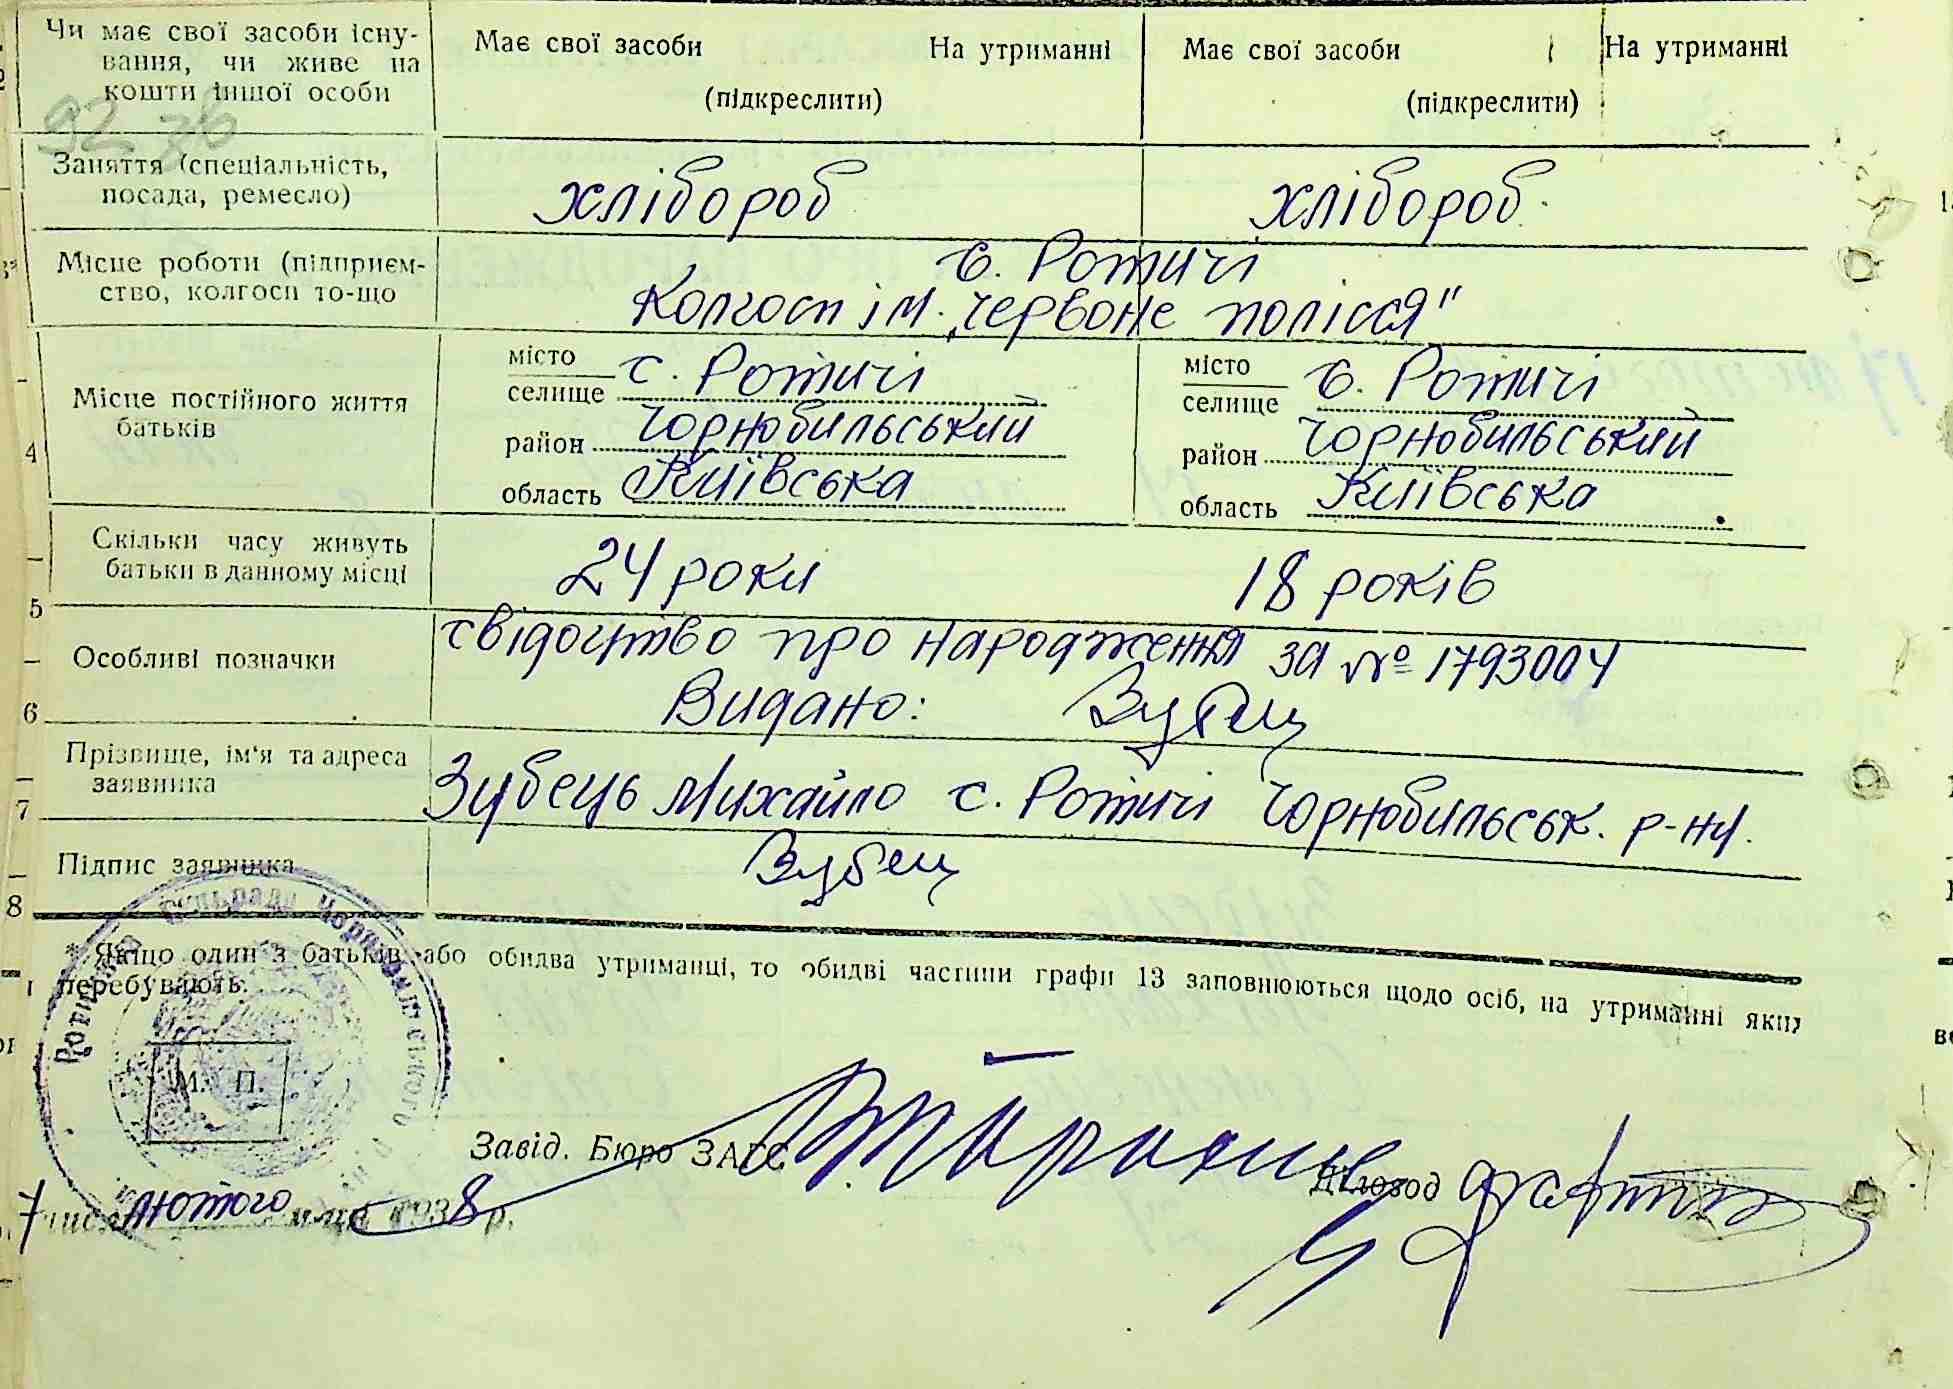 Чи має свої засоби існу-
вання, чи живе на
кошти іншої особи
Має свої засоби На утриманні Має свої засоби На утриманні
(підкреслити) (підкреслити)
92 36
Заняття (спеціальність,
посада, ремесло)
хлібороб хлібороб.
Місце роботи (підприєм-
ство, колгосп то-що
с. Ротичі
Колгосп ім. „Червоне полісся"
Місце постійного життя
батьків
місто
селище с. Ротичі
район Чорнобильський
область Київська
місто
селище с. Ротичі
район Чорнобильський
область Київська
Скільки часу живуть
батьки в данному місці
24 роки 18 років
5
Особливі позначки
свідоцтво про народження за № 1793004
Видано: Зубец
6
Прізвище, ім'я та адреса
заявника
Зубець Михайло с. Ротичі Чорнобильськ. р-ну.
7
Підпис заявника
Зубец
8
* Якщо один з батьків або обидва утриманці, то обидві частини графи 13 заповнюються щодо осіб, на утриманні яких
перебувають.
М. П.
Завід. Бюро ЗАГС
Діловод
7 числа лютого м-ця 1938 р.